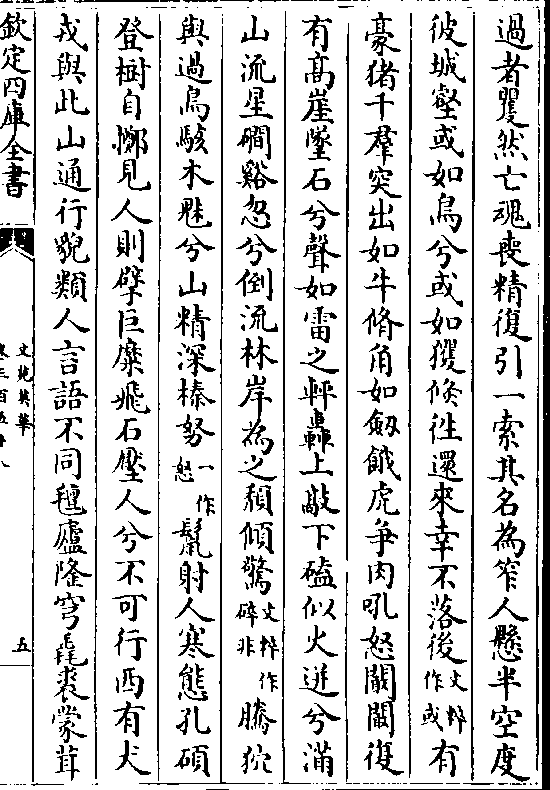 過者矍然亡魂喪精復引一索其名為笮人懸半空度
彼城壑或如鳥兮或如玃倐往還來幸不落後文粹作或有
豪猪千羣突出如牛脩角如劔餓虎争肉吼怒闞闞復
有髙崖墜石兮聲如雷之軯轟上敲下磕似火迸兮滿
山流星磵谿忽兮倒流林岸為之頽傾驚文粹作碎非騰狖
與過鳥駭木魅兮山精深榛努一作怒鬣射人寒態孔碩
登樹自擲見人則擘巨麋飛石壓人兮不可行西有犬
戎與此山通行貌類人言語不同氊廬隆穹毳裘蒙茸
欽定四庫全書
文苑英華
卷三百五十八
五